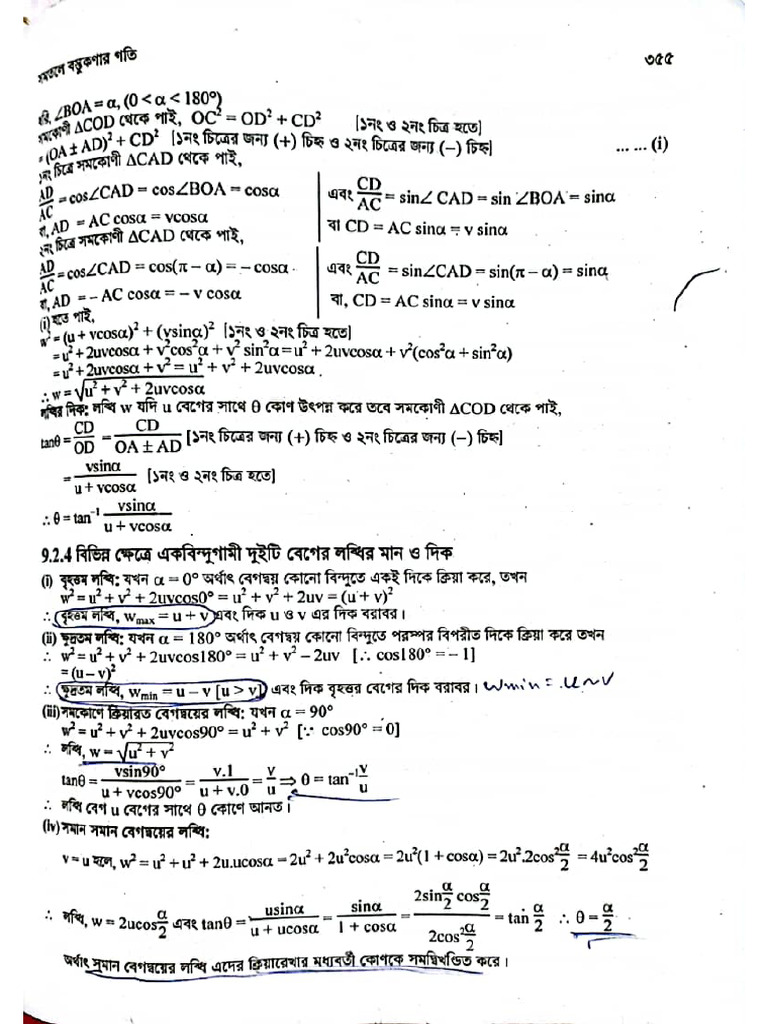 সমতলে বস্তুকণার গতি ৩৫৫
ধরি, ∠BOA = α, (0 < α < 180°)
সমকোণী ΔCOD থেকে পাই, OC² = OD² + CD² [১নং ও ২নং চিত্র হতে]
= (OA ± AD)² + CD² [১নং চিত্রের জন্য (+) চিহ্ন ও ২নং চিত্রের জন্য (−) চিহ্ন] ... ... (i)
১নং চিত্রে সমকোণী ΔCAD থেকে পাই,
AD/AC = cos∠CAD = cos∠BOA = cosα এবং CD/AC = sin∠ CAD = sin ∠BOA = sinα
বা, AD = AC cosα = vcosα বা CD = AC sinα = v sinα
২নং চিত্রে সমকোণী ΔCAD থেকে পাই,
AD/AC = cos∠CAD = cos(π − α) = − cosα এবং CD/AC = sin∠CAD = sin(π − α) = sinα
বা, AD = − AC cosα = − v cosα বা, CD = AC sinα = v sinα
(i) হতে পাই,
w² = (u + vcosα)² + (vsinα)² [১নং ও ২নং চিত্র হতে]
= u² + 2uvcosα + v²cos²α + v² sin²α = u² + 2uvcosα + v²(cos²α + sin²α)
= u² + 2uvcosα + v² = u² + v² + 2uvcosα
∴ w = √u² + v² + 2uvcosα
লব্ধির দিক: লব্ধি w যদি u বেগের সাথে θ কোণ উৎপন্ন করে তবে সমকোণী ΔCOD থেকে পাই,
tanθ = CD/OD = CD/OA ± AD [১নং চিত্রের জন্য (+) চিহ্ন ও ২নং চিত্রের জন্য (−) চিহ্ন]
= vsinα/u + vcosα [১নং ও ২নং চিত্র হতে]
∴ θ = tan⁻¹ vsinα/u + vcosα
9.2.4 বিভিন্ন ক্ষেত্রে একবিন্দুগামী দুইটি বেগের লব্ধির মান ও দিক
(i) বৃহত্তম লব্ধি: যখন α = 0° অর্থাৎ বেগদ্বয় কোনো বিন্দুতে একই দিকে ক্রিয়া করে, তখন
w² = u² + v² + 2uvcos0° = u² + v² + 2uv = (u + v)²
∴ বৃহত্তম লব্ধি, wmax = u + v এবং দিক u ও v এর দিক বরাবর।
(ii) ক্ষুদ্রতম লব্ধি: যখন α = 180° অর্থাৎ বেগদ্বয় কোনো বিন্দুতে পরস্পর বিপরীত দিকে ক্রিয়া করে তখন
∴ w² = u² + v² + 2uvcos180° = u² + v² − 2uv [∴ cos180° = − 1]
= (u − v)²
∴ ক্ষুদ্রতম লব্ধি, wmin = u − v [u > v] এবং দিক বৃহত্তর বেগের দিক বরাবর। wmin = u ~ v
(iii) সমকোণে ক্রিয়ারত বেগদ্বয়ের লব্ধি: যখন α = 90°
w² = u² + v² + 2uvcos90° = u² + v² [∵ cos90° = 0]
∴ লব্ধি, w = √u² + v²
tanθ = vsin90°/u + vcos90° = v.1/u + v.0 = v/u ⇒ θ = tan⁻¹ v/u
∴ লব্ধি বেগ u বেগের সাথে θ কোণে আনত।
(iv) সমান সমান বেগদ্বয়ের লব্ধি:
v = u হলে, w² = u² + u² + 2u.ucosα = 2u² + 2u²cosα = 2u²(1 + cosα) = 2u².2cos²α/2 = 4u²cos²α/2
∴ লব্ধি, w = 2ucosα/2 এবং tanθ = usinα/u + ucosα = sinα/1 + cosα = 2sinα/2 cosα/2 / 2cos²α/2 = tan α/2 ∴ θ = α/2
অর্থাৎ সমান বেগদ্বয়ের লব্ধি এদের ক্রিয়ারেখার মধ্যবর্তী কোণকে সমদ্বিখন্ডিত করে।